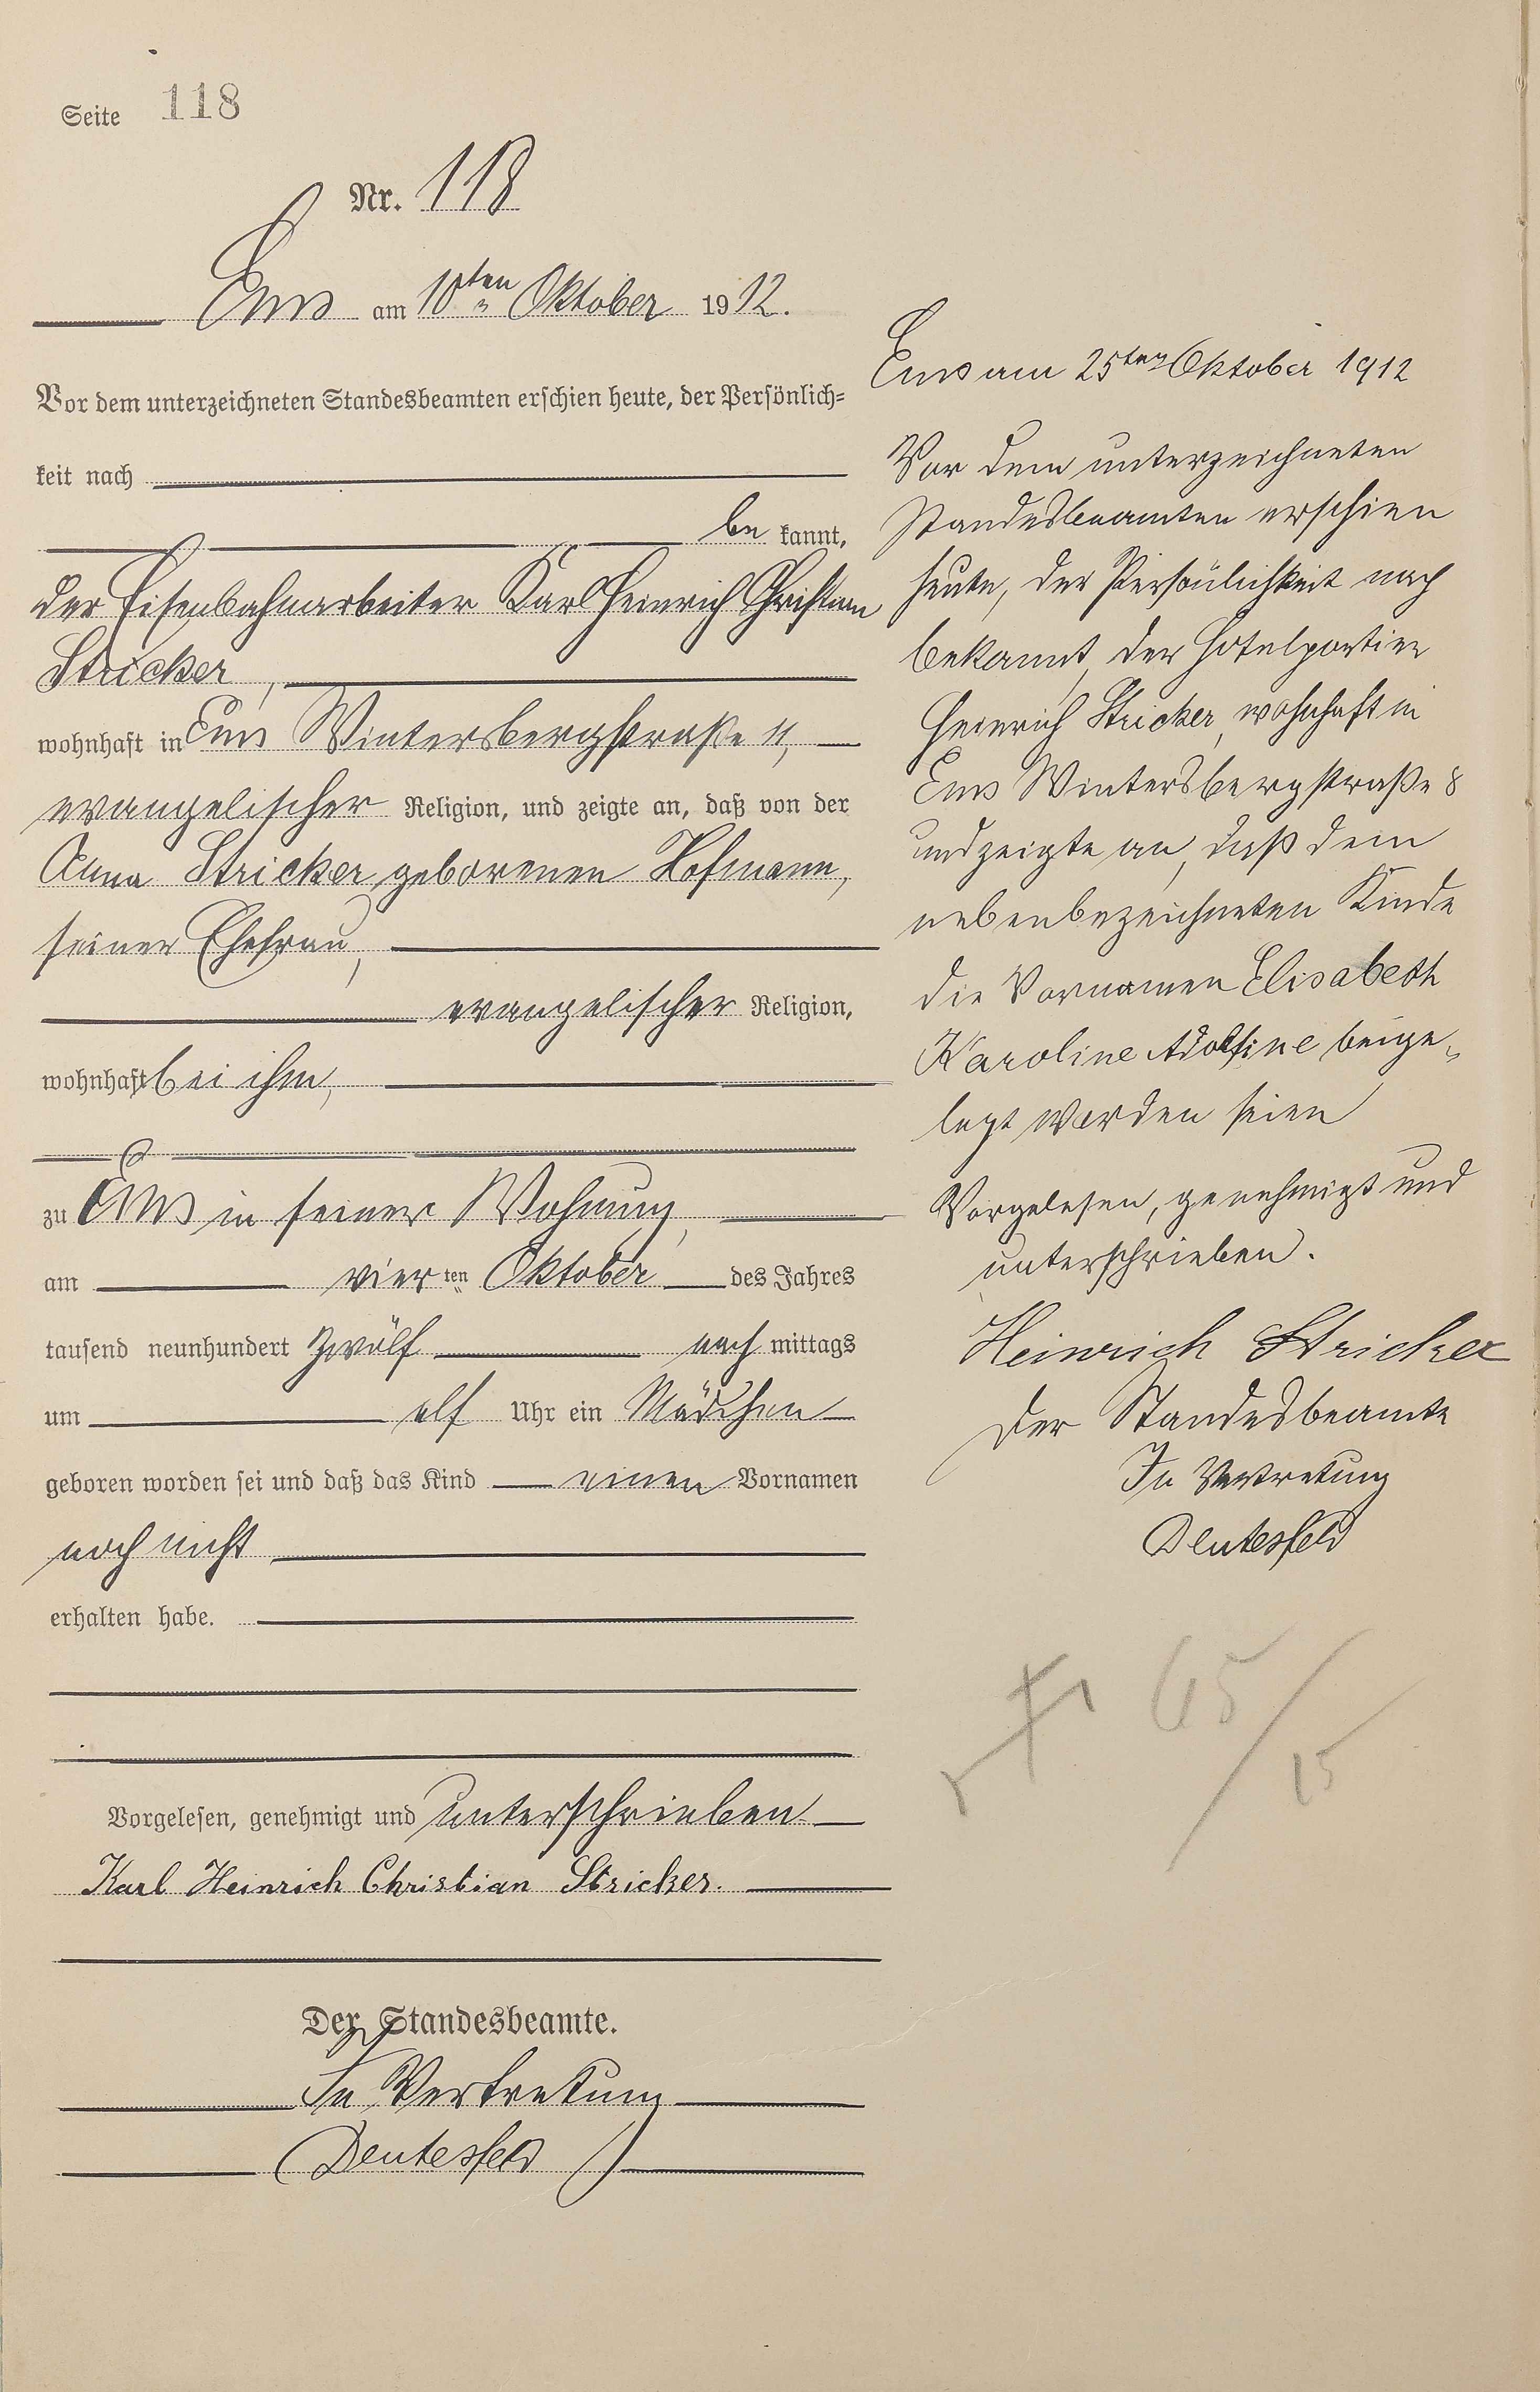 Seite 118
Nr. 118
Ems am 10ten Oktober 1912.
Vor dem unterzeichneten Standesbeamten erschien heute, der Persönlich-
keit nach
be kannt,
der Eisenbahnarbeiter Karl Heinrich Christian
Stricker,
wohnhaft in Ems Wintersbergstraße 11,
evangelischer Religion, und zeigte an, daß von der
Anna Stricker, geborenen Hofmann,
seiner Ehefrau,
evangelischer Religion,
wohnhaft bei ihm,
zu Ems in seiner Wohnung,
am vier ten Oktober des Jahres
tausend neunhundert zwölf nach mittags
um elf Uhr ein Mädchen
geboren worden sei und daß das Kind einen Vornamen
noch nicht
erhalten habe.
Vorgelesen, genehmigt und unterschrieben
Karl Heinrich Christian Stricker.
Der Standesbeamte.
In Vertretung
Deutesfeld
Ems am 25ten Oktober 1912
Vor dem unterzeichneten
Standesbeamten erschien
heute, der Persönlichkeit nach
bekannt, der Hotelportier
Heinrich Stricker, wohnhaft in
Ems Wintersbergstraße 8
und zeigte an, daß dem
nebenbezeichneten Kinde
die Vornamen Elisabeth
Karoline Adolfine beige-
legt worden seien
Vorgelesen, genehmigt und
unterschrieben.
Heinrich Stricker
Der Standesbeamte
In Vertretung
Deutesfeld
65/15